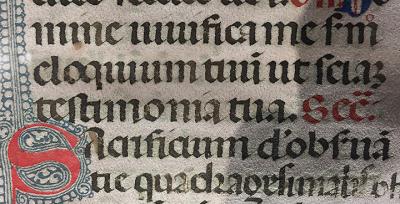 mine uiuifica me sm
eloquium tuū ut sciaȝ
testimonia tua. Sec̄.
Sacrificium d'obsuā
tie quadragesimalis